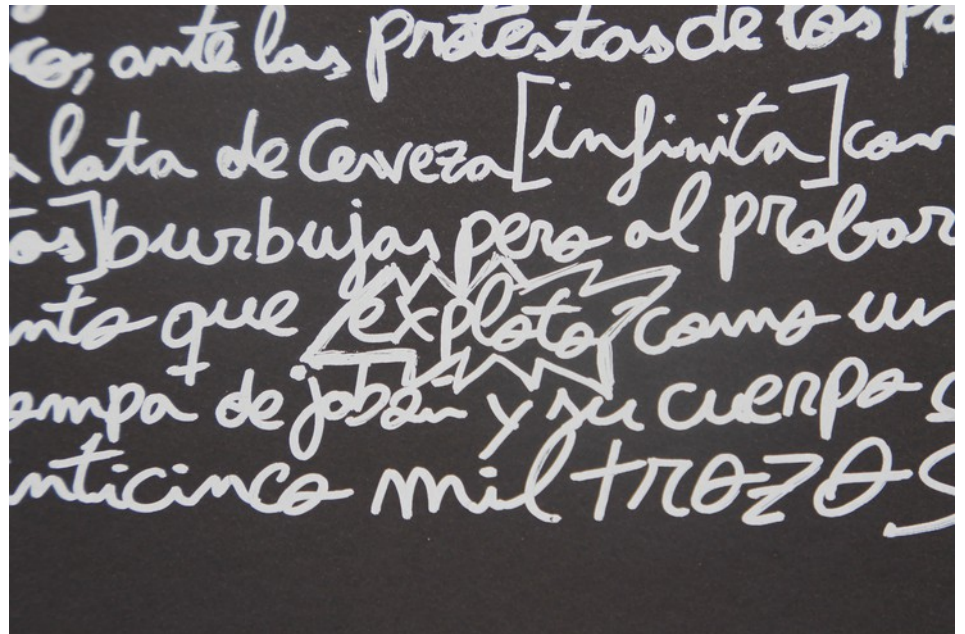 co, ante las protestas de los pa
a lata de Cerveza [infinita] con
tos] burbujas pero al probar
nto que explota como un
ompa de jobón y su cuerpo s
inticinco mil trozos